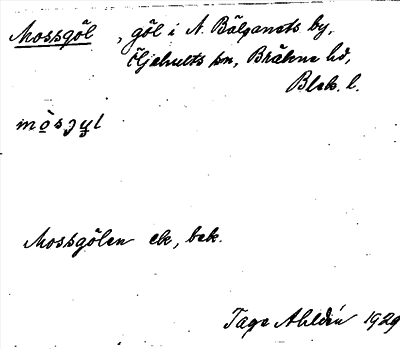 Mossgöl, göl i N. Bälganets by,
Öljehults sn, Bräkne hd,
Blek. l.
mòsɟyl
Mossgölen ek, bek.
Tage Ahldén 1929